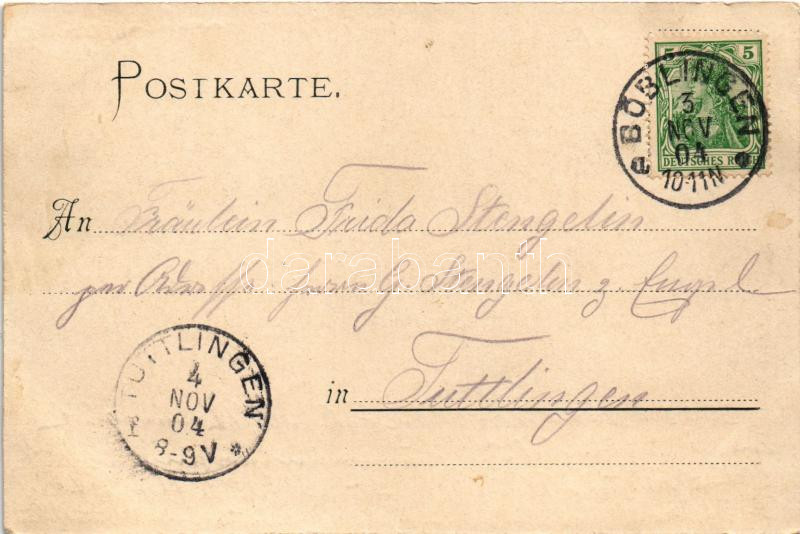 POSTKARTE.
5 5
DEUTSCHES REICH
BÖBLINGEN
3
NOV
04
10-11N
An Fräulein Frida Stengelin
per Adresse Herrn G. Stengelin z. Engel
in Tuttlingen
TUTTLINGEN
4
NOV
04
8-9V
darabanth